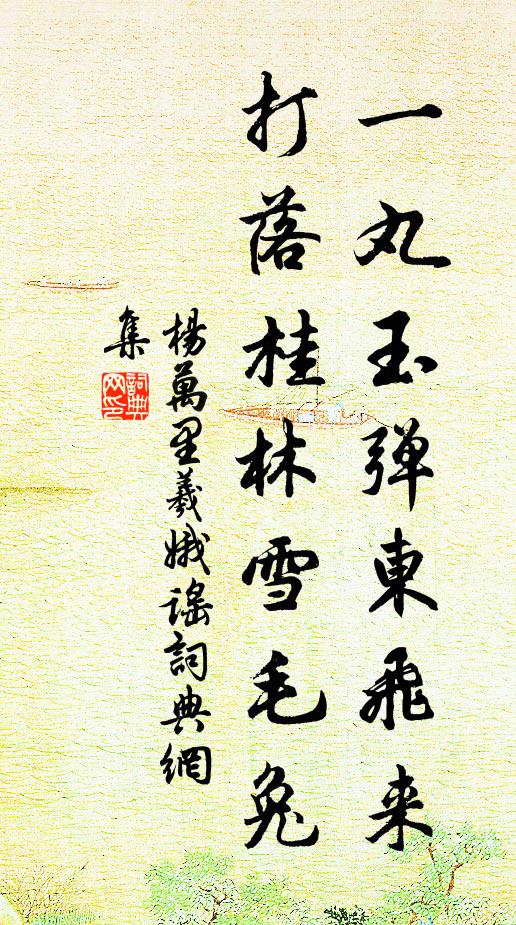 一丸玉弹東飛来
打落桂林雪毛兔
楊萬里羲娥謠詞典網
集
詞典
网印